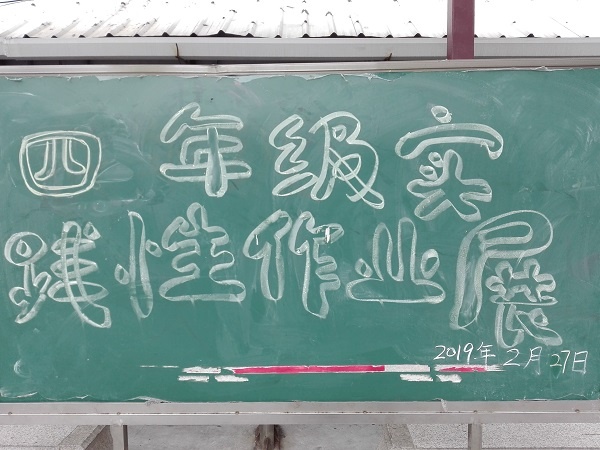 四年级实
践性作业展
2019年2月27日